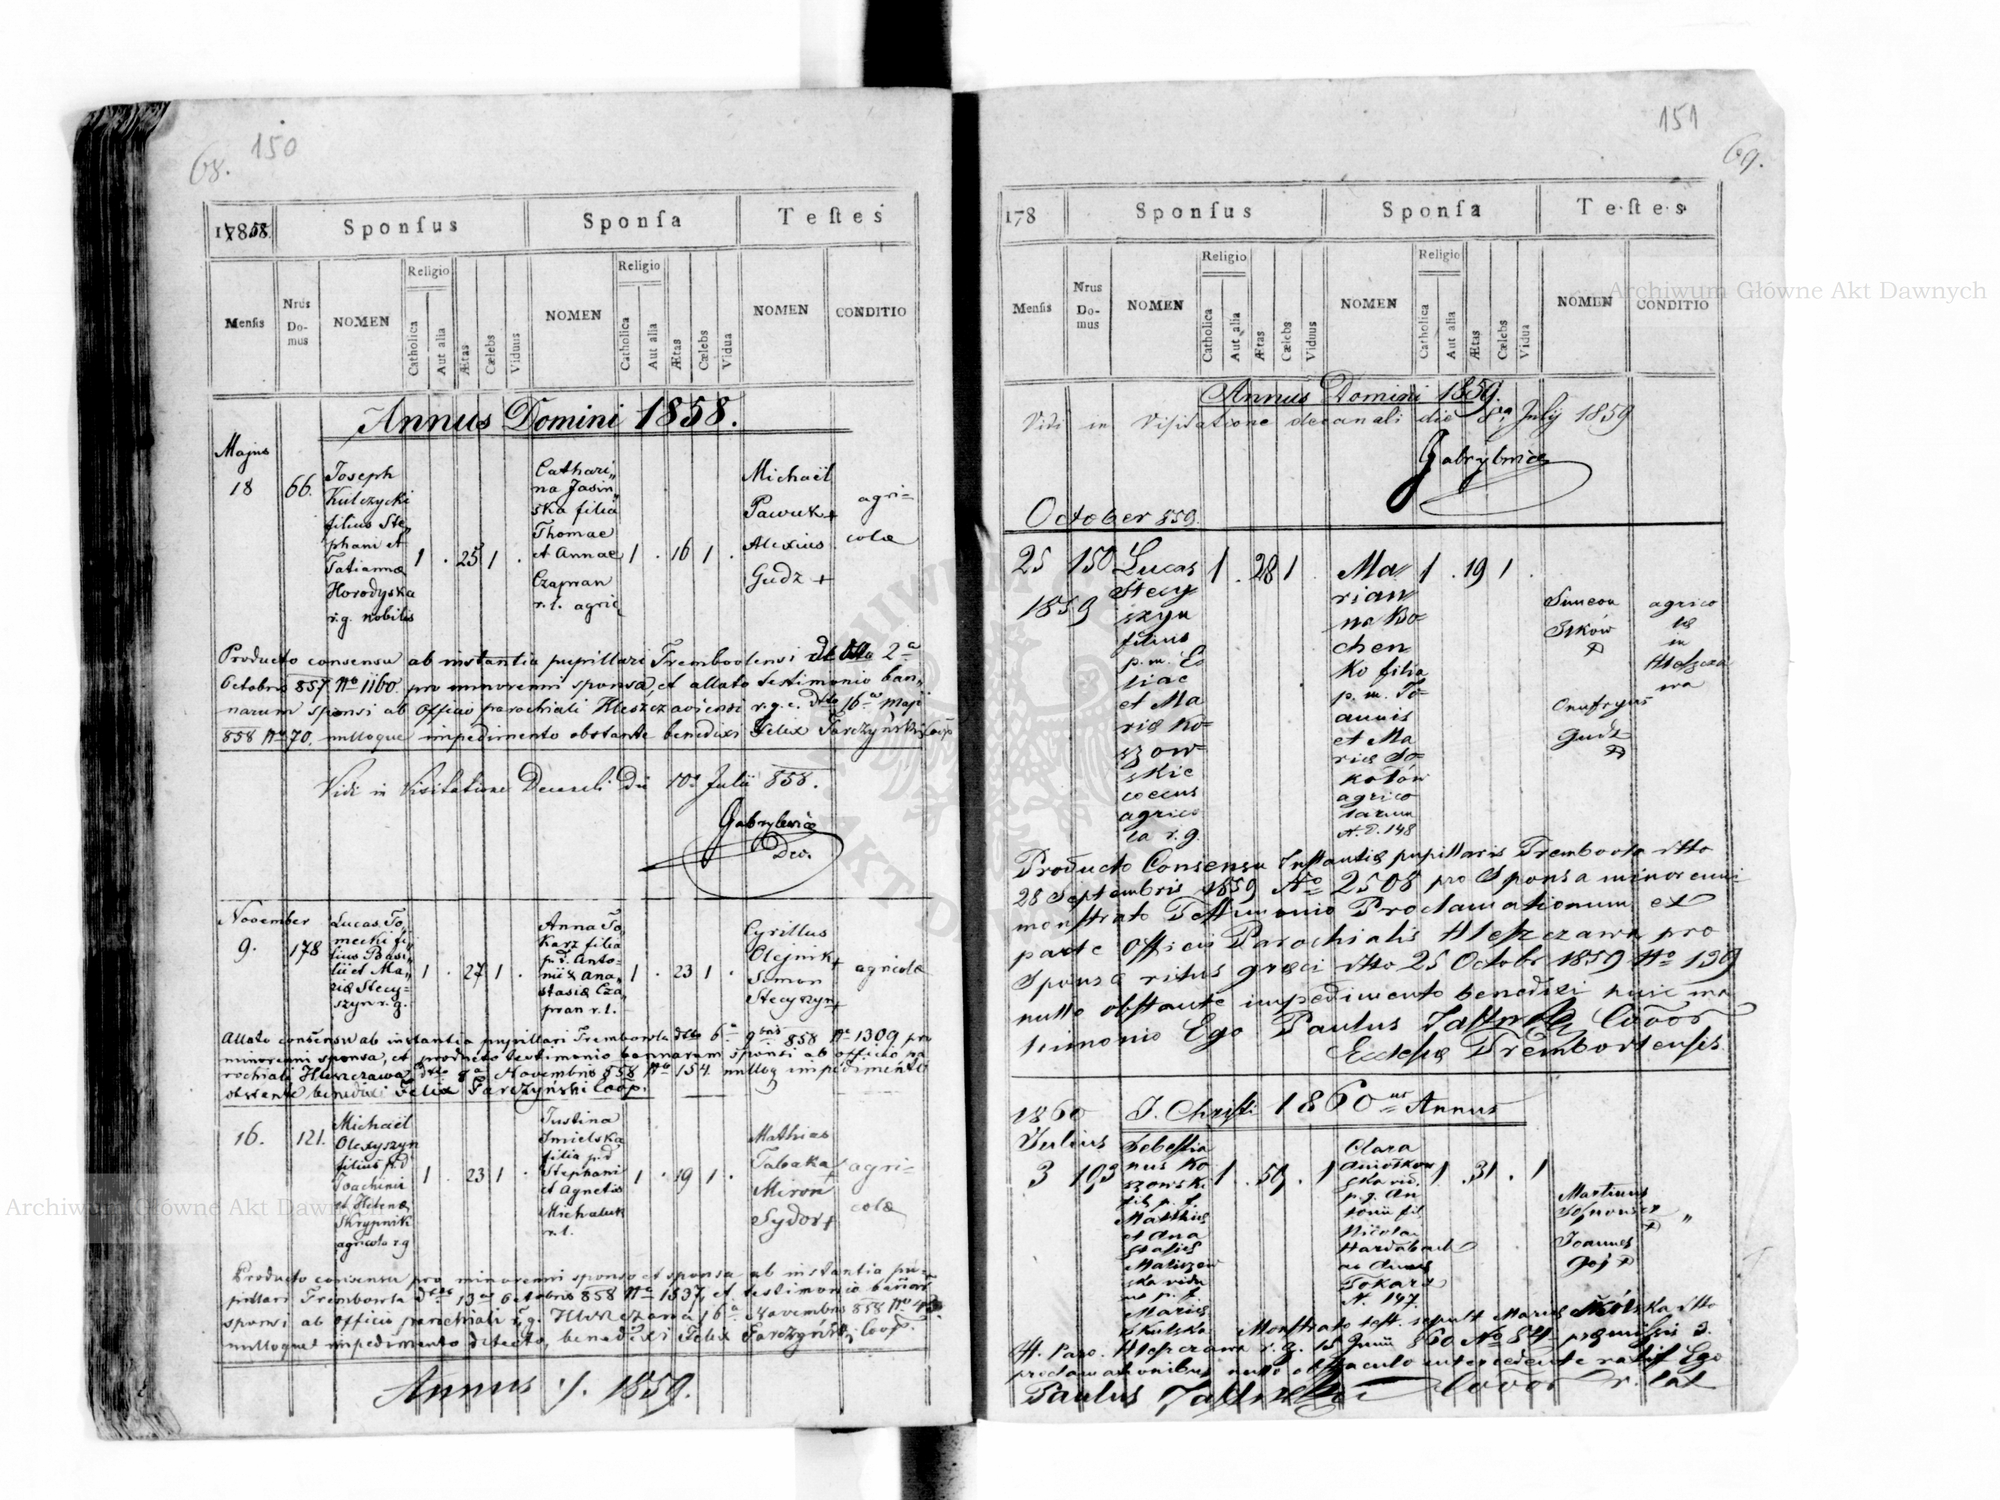 68. 150
1858.
Sponſus
Sponſa
Teſtes
Menſis
Nrus Do-
mus
NOMEN
Religio
Catholica
Aut alia
Ætas
Cælebs
Viduus
NOMEN
Religio
Catholica
Aut alia
Ætas
Cælebs
Vidua
NOMEN
CONDITIO
Annus Domini 1858.
Majus
18
66.
Joseph
Kulczycki
filius Ste„
phani et
Tatianna
Horodyska
r.g. nobilis
1 . 25 1 .
Cathari„
na Jasin„
ska filia
Thomae
et Annae
Czapran
r.l. agric
1 . 16 1 .
Michaël
Pawuk +
Alexius
Gudz +
agri=
colæ
Producto consensu ab instantia pupillari Trembowlensi 2a
Octobris 857 No 1160 pro minorenni sponsa, et allato testimonio ban„
narum sponsi ab Officio parochiali Hleszczaviensi r.g.c. dtto 16a Maji
858 No 70. nulloque impedimento obstante benedixi Felix Tarczyński Coop
Vidi in Visitatione Decanali Die 10a Julii 858.
Gabrylewicz
Dec.
November
9.
178
Lucas To„
mecki fi„
lius Basi„
lii et Ma„
riæ Stecy=
szyn r.g.
1 . 27 1 .
Anna To„
karz filia
p.d. Anto=
nii & Ana„
stasiæ Cza„
pran r.l.
1 . 23 1 .
Cyrillus
Olejnik +
Simon
Stecyszyn +
agricolæ
Allato consensu ab instantia pupillari Trembowla dtto 6a 9bris 858 No 1309 pro
minorenni sponsa, et producto testimonio bannarum sponsi ab officio pa„
rochiali Hleszczawa dtto 8a Novembris 858 No 154. nulloq impedimento
obstante benedixi Felix Tarczyński Coop.
16.
121.
Michaël
Olexyszyn
filius p.d
Joachimi
et Helenæ
Skrypnik
agricola r.g
1 . 23 1 .
Justina
Imielska
filia p.d
Stephani
et Agnetis
Michaluk
r.l.
1 . 19 1 .
Mathias
Tabaka
Miron
Sydor +
agri=
colæ
Producto consensu pro minorenni sponso et sponsa ab instantia pu=
pillari Trembowla 13a Octobris 858 No 1337, et testimonio bannar
sponsi ab officio parochiali r.g. Hleszczawa 16a Novembris 858 No
nulloque impedimento detecto, benedixi Felix Tarczyński Coop.
Annus 1859.
151
69.
178
Sponſus
Sponſa
Teſtes
Menſis
Nrus
Do-
mus
NOMEN
Religio
Catholica
Aut alia
Ætas
Cælebs
Viduus
NOMEN
Religio
Catholica
Aut alia
Ætas
Cælebs
Vidua
NOMEN
CONDITIO
Annus Domini 1859.
Vidi in Visitatione decanali die 8va July 1859
Gabrylewicz
October 859.
25
1859
150
Lucas
Stecy
szyn
filius
p.m. E
liae
et Ma
riæ Ko=
szow
skie
coccus
agrico
la r.g.
1 . 28 1
Ma„
rian
na Ko=
chen
ko filia
p.m. Jo=
annis
et Ma
riæ So=
kołów
agrico
larum
N.D. 148
1 . 19 1 .
Simeon
Ilków
+
Onufryus
Gudz
+
agrico
læ
in
Hleszcza
wa
Producto Consensu Instantiæ pupillaris Trembowla dtto
28 Septembris 1859 No 2508 pro Sponsa minorenni
monstrato Testimonio Proclamationum ex
parte Officii Parochialis Hleszczawa pro
Sponso ritus græci dtto 25 Octobr 1859 No 139
nullo obstante impedimento benedixi huic ma
trimonio Ego Paulus Coop
Ecclesiæ Trembowlensis.
1860
J. Christi 1860 us Annus
Julius
3
193
Sebestia
nus Ko
szowski
fil, p. f.
Mathiæ
et Ana
stasiæ
ska vidu
us p. f.
Mariæ
Skulska
1 . 59 . 1
Clara
ska vid.
p. g. An
tonii fil
Nicolai
Hardabach
ac Annæ
Tokarz
N. 147.
1 . 31 . 1
Martinus
+
Joannes
Goj +
„
Monstrato test. sepult Mariæ Skólska dtto
Hleszczawa r.g. 15 Junii 860 No 84 præmissis 3.
proclamationibus nullo obstaculo intercedente Ego
Paulus Coop r. lat
Archiwum Główne Akt Dawnych
Archiwum Główne Akt Dawnych